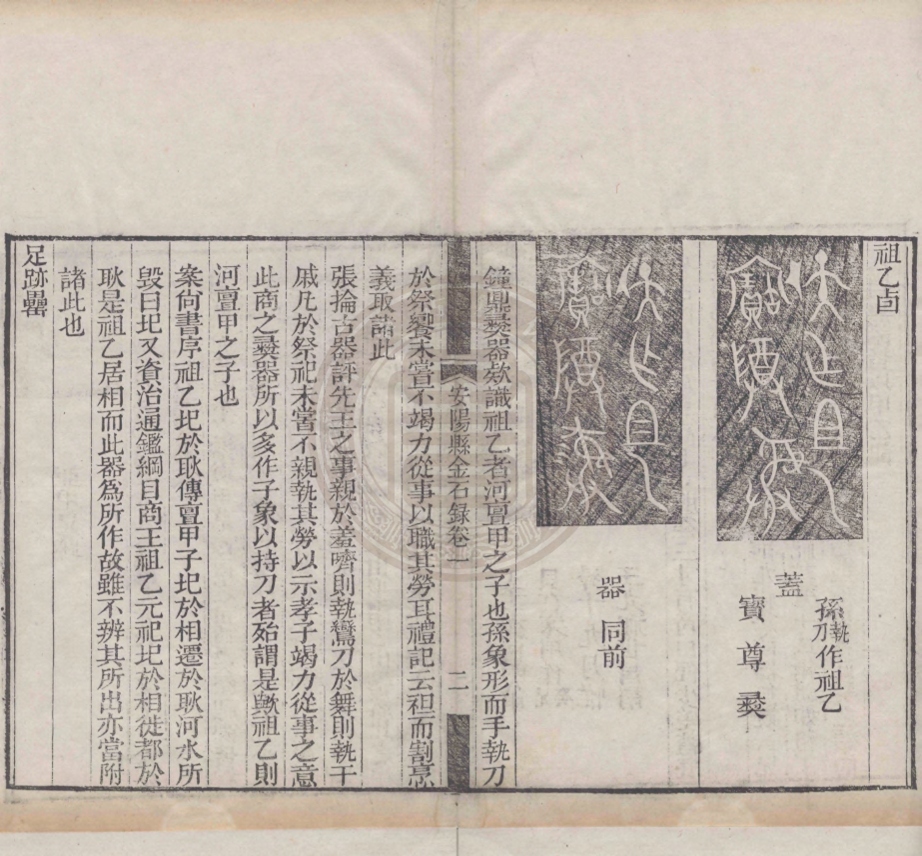 祖乙卣
孫執刀作祖乙
蓋
寶尊彝
器同前
鐘鼎彝器欵識祖乙者河亶甲之子也孫象形而手執刀
安陽縣金石録卷一 二
於祭饗未嘗不竭力從事以職其勞耳禮記云袒而割烹
義取諸此
張掄古器評先王之事親於羞嚌則執鸞刀於舞則執干
戚凡於祭祀未嘗不親執其勞以示孝子竭力從事之意
此商之彝器所以多作子象以持刀者殆謂是歟祖乙則
河亶甲之子也
案尙書序祖乙圮於耿傳亶甲子圮於相遷於耿河水所
毀曰圮又資治通鑑綱目商王祖乙元祀圮於相徙都於
耿是祖乙居相而此器爲所作故雖不辨其所出亦當附
諸此也
足跡罍